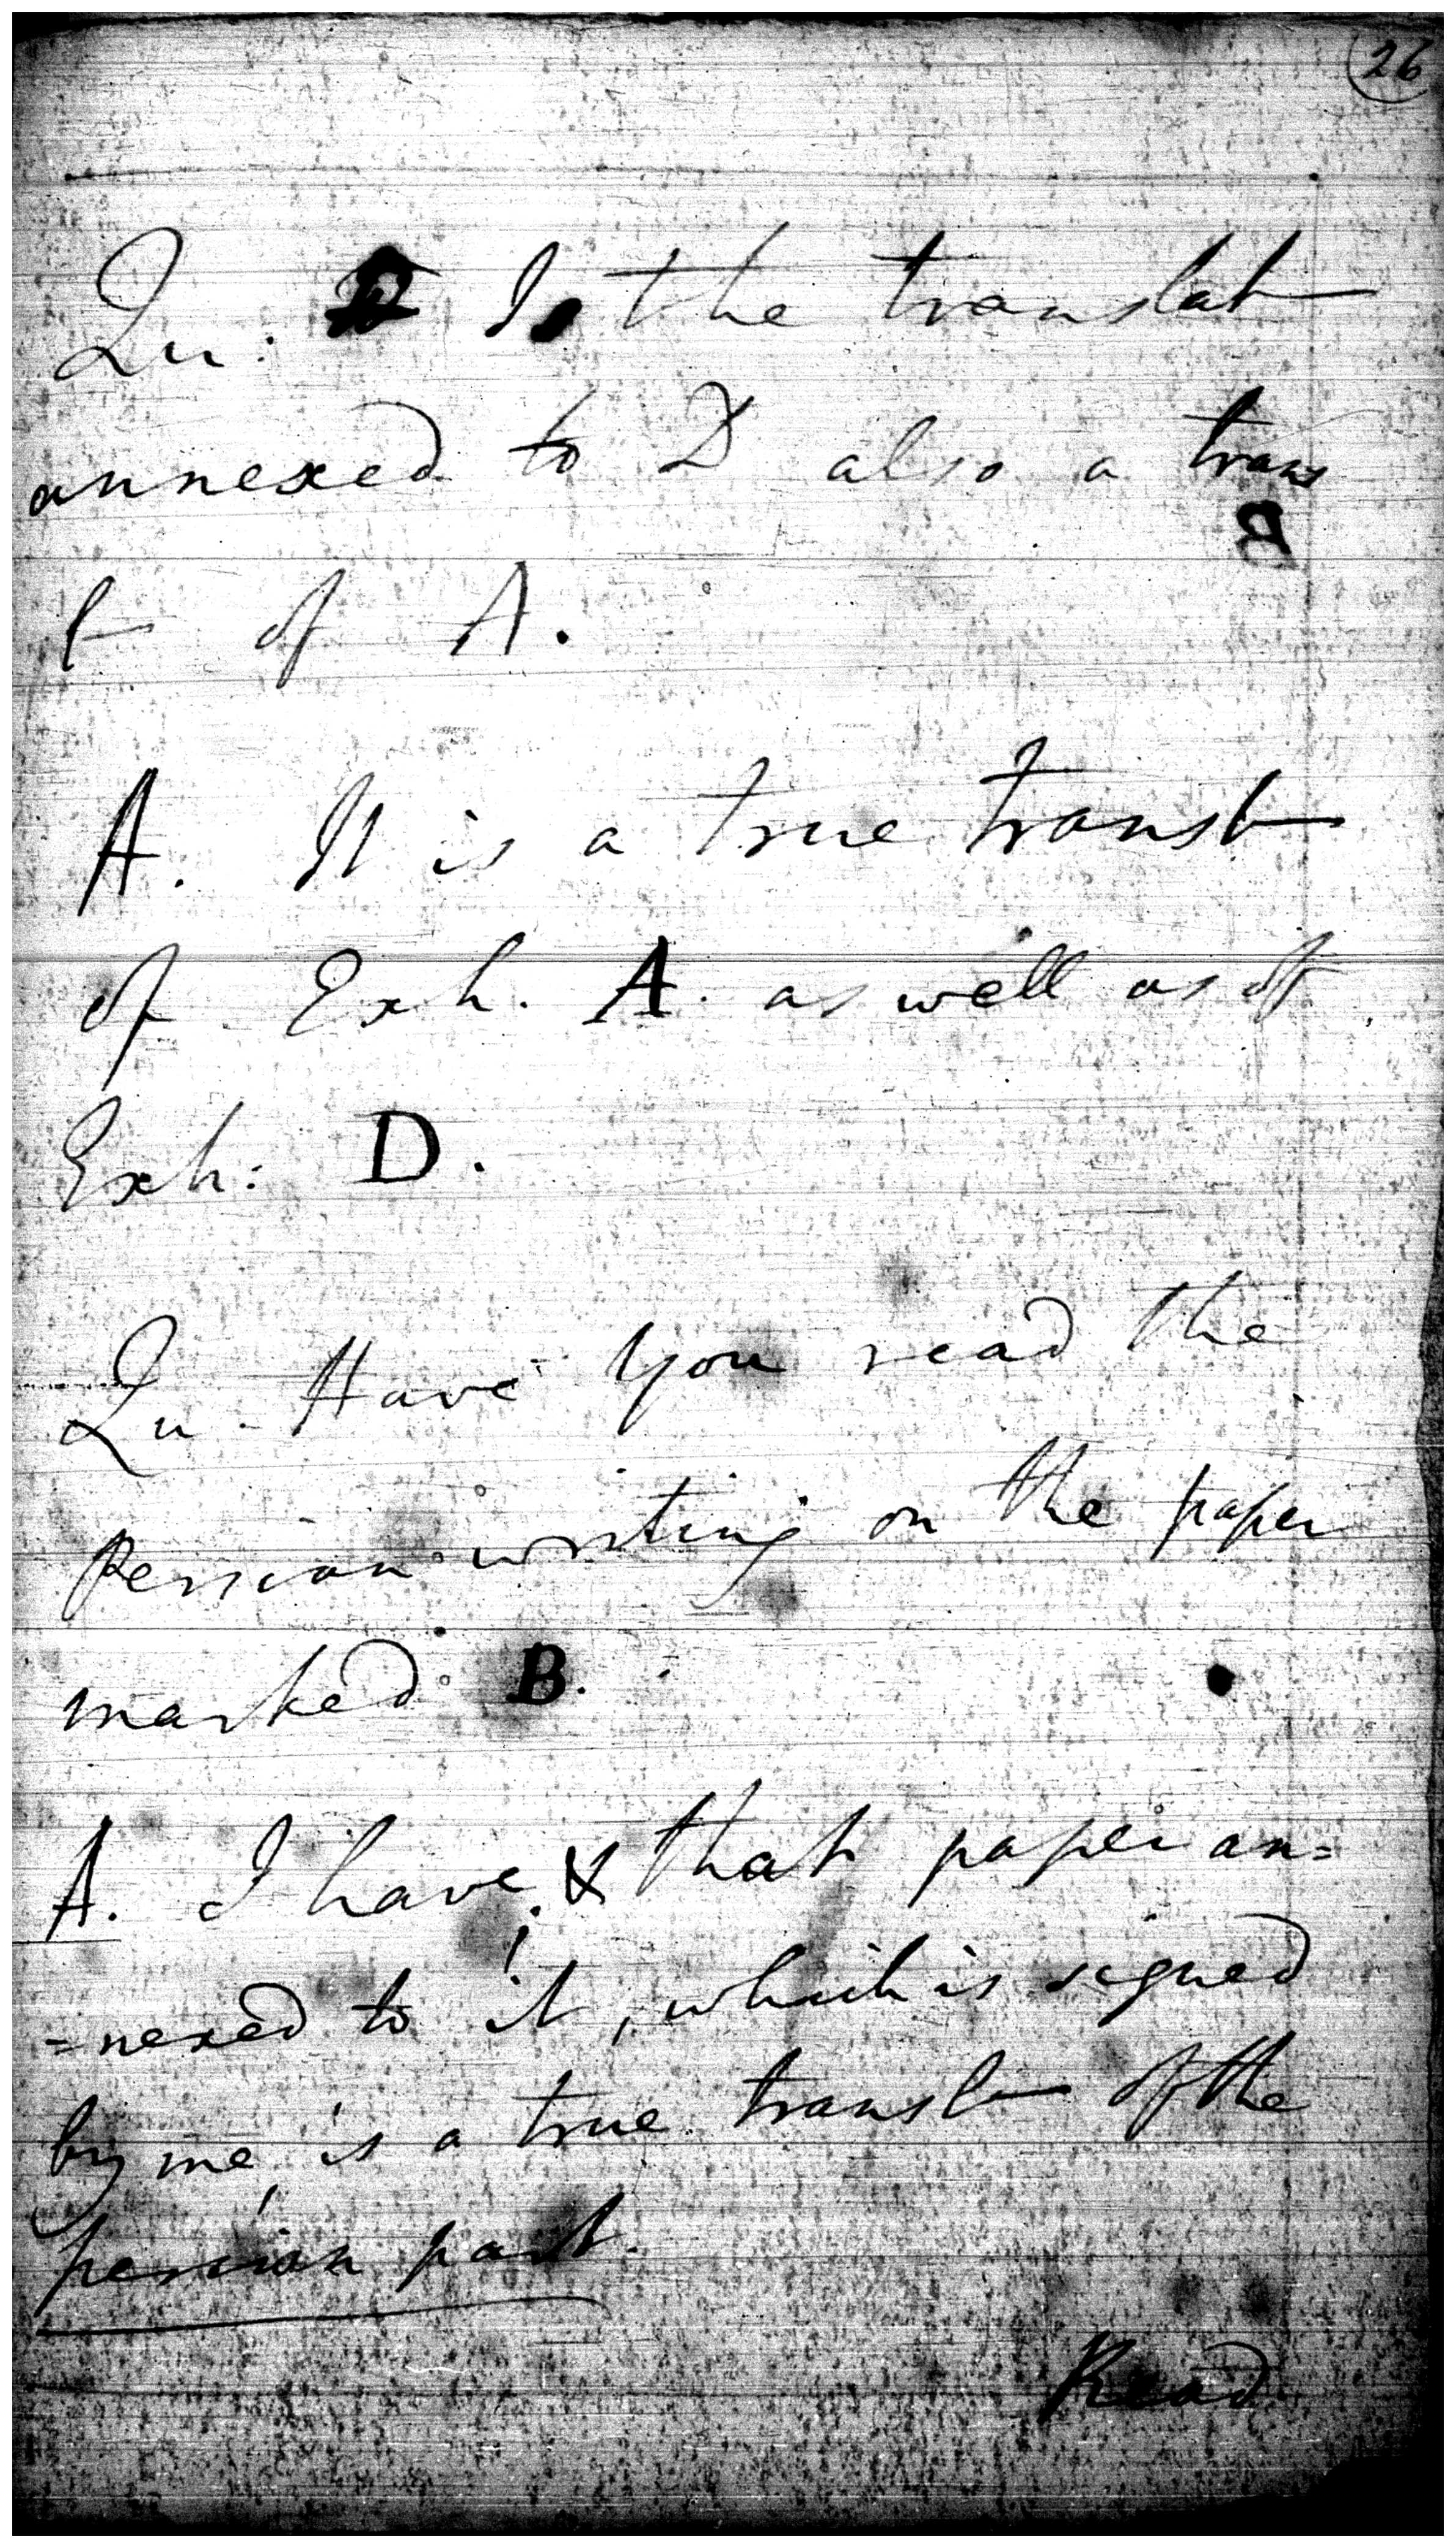 26
Qu: Is the translat
annexed to D also a trans
l of A.
A. It is a true transl
of Exh. A. as well as of
Exh: D.
Qu. Have you read the
Persian writing on the paper
marked B.
A. I have, & that paper an=
=nexed to it, which is signed
by me, is a true transl of the
persian part.
Read